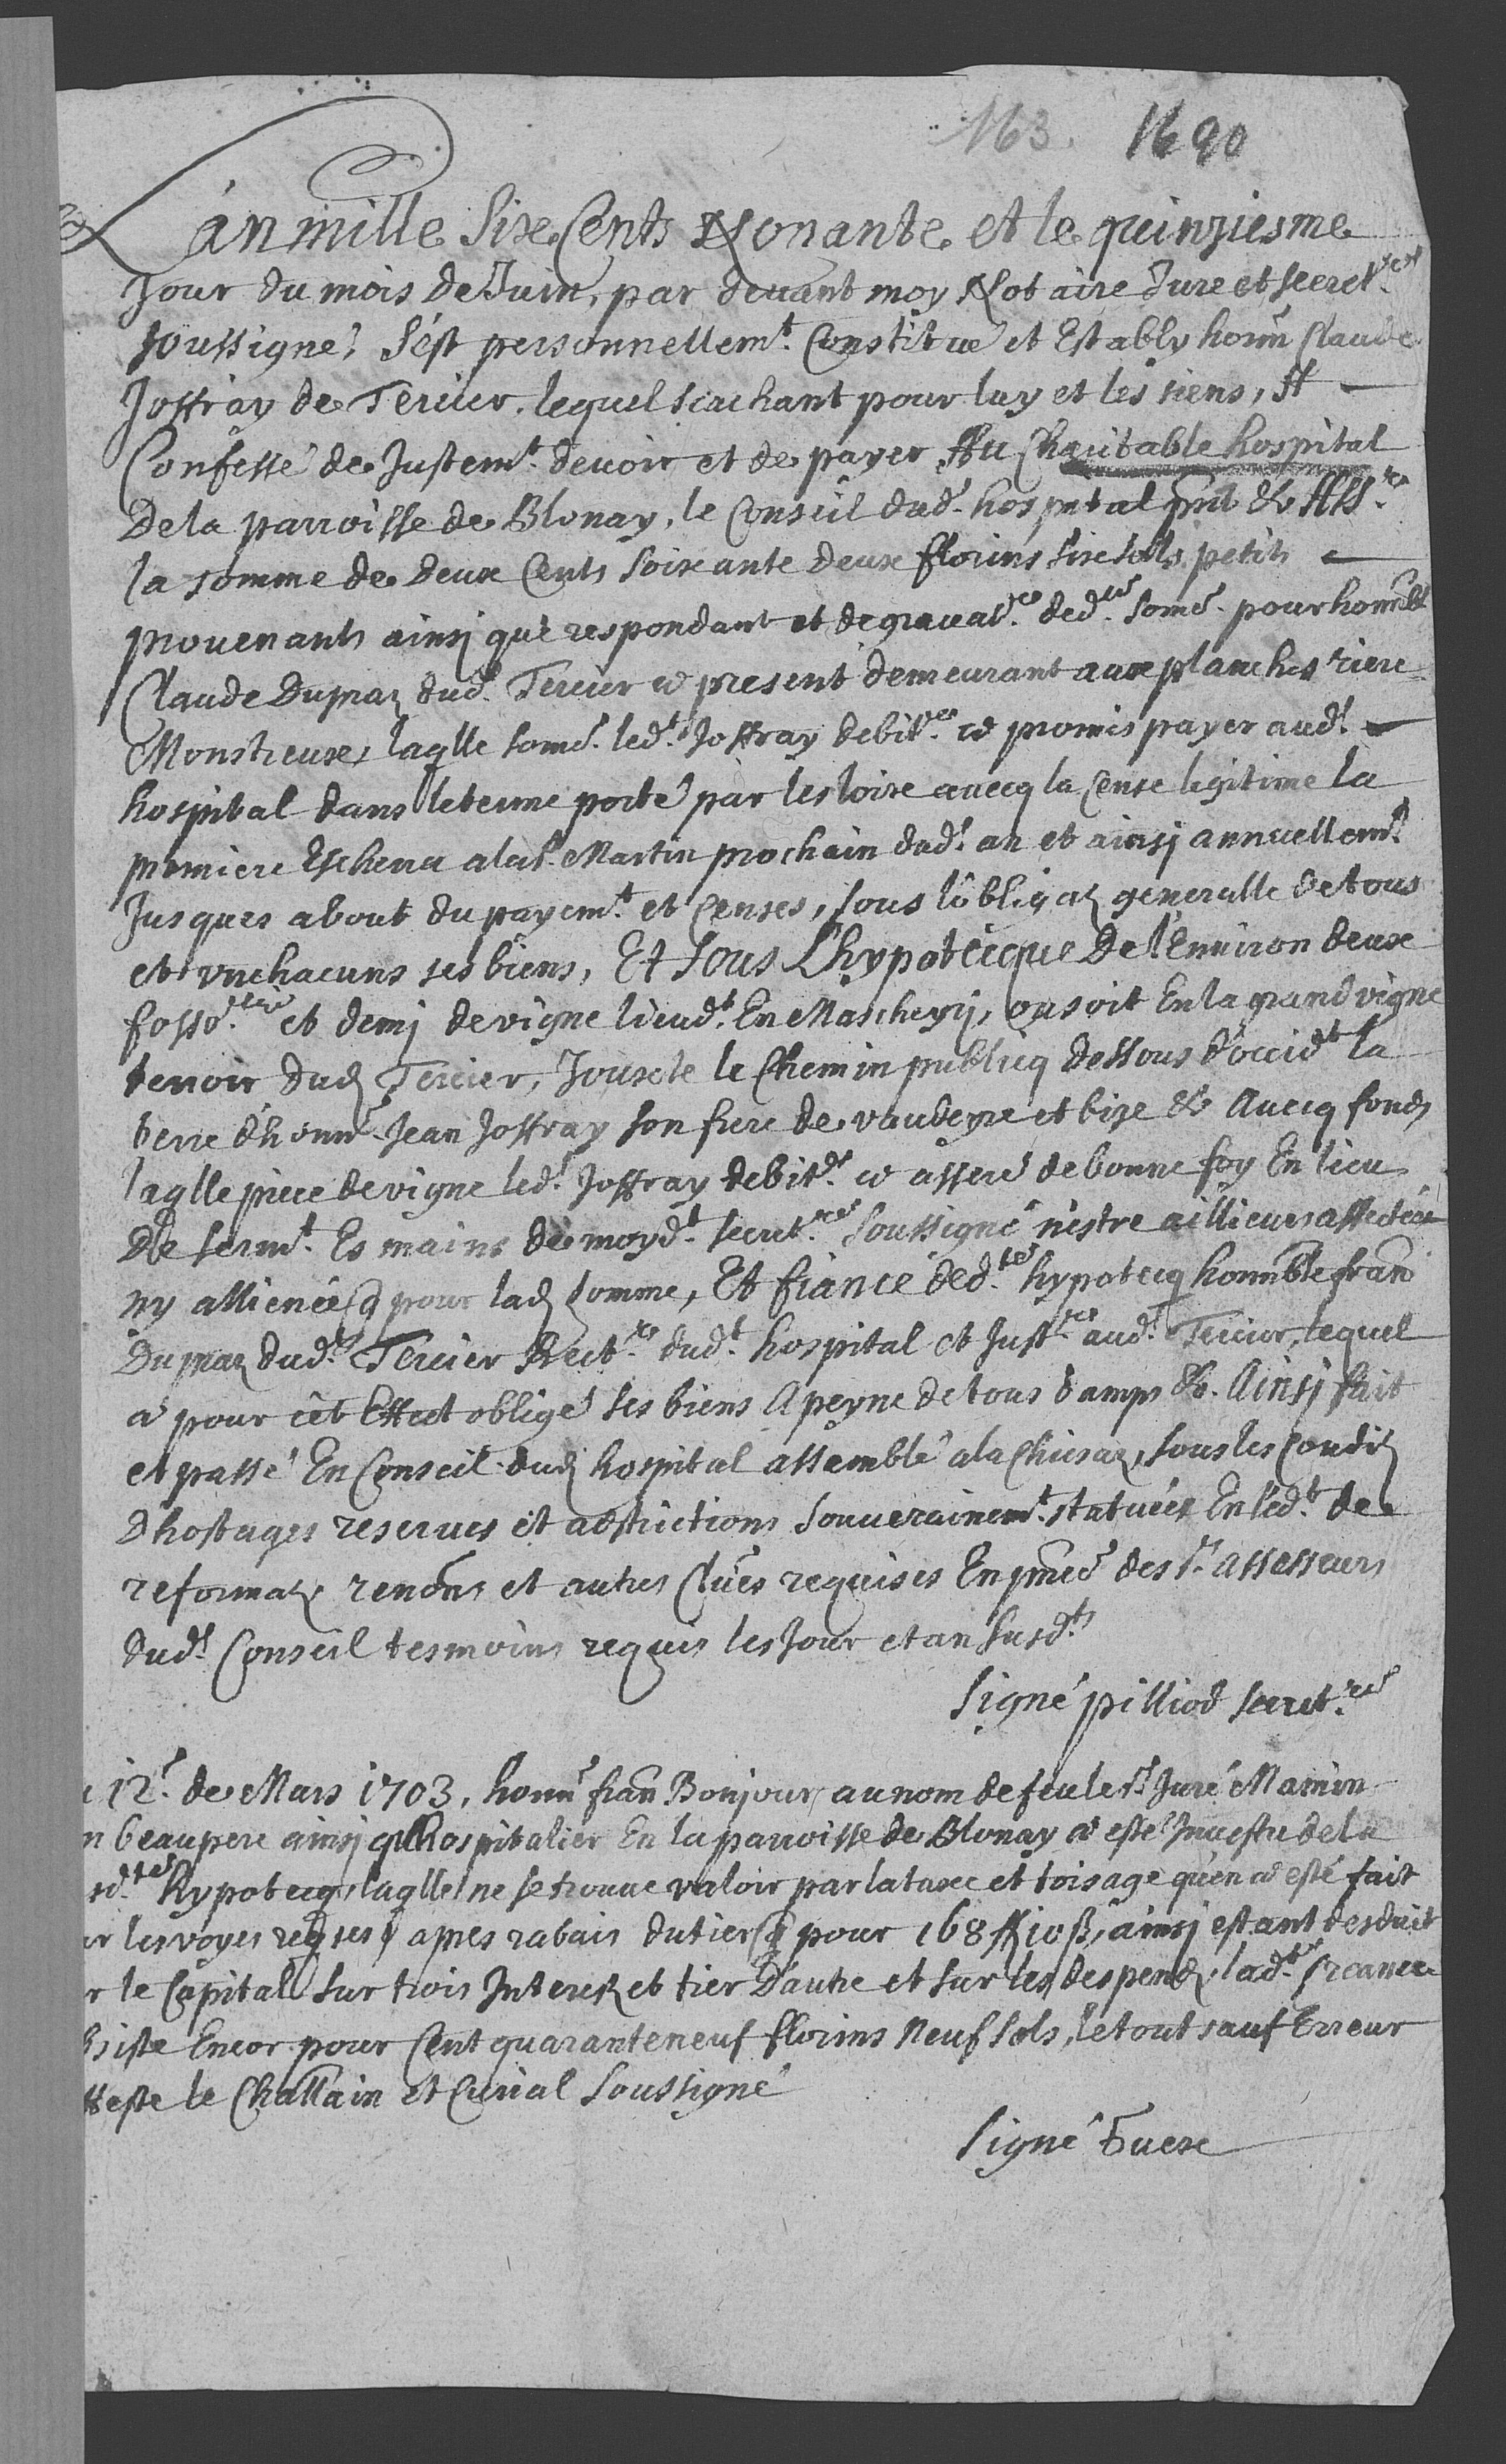 163. 1690
L'an mille Sixe Cents Nonante et le quinziesme
Jour du mois de Juin, par devant moy Notaire Juré et secret.re
soussigné, S'est personnellem.t Constitué et Estably honn Claude
Joffray de Tercier, lequel scachant pour luy et les siens, A
Confessé de Justem.t devoir et de payer Au Charitable hospital
De la parroisse de Blonay, le Conseil dud. hospital
la somme de deux Cents Soixante deux florins sixe sols petits
provenants ainsj que respondant et degravat.re ded.te some. pour honn.ble
Claude Dupraz dud. Tercier et present demeurant aux planches riere
Monstreux, laqlle some. led.t Joffray debit.r a promis payer aud.t
hospital dans le terme porté par les loixe avecq la Cense legitime la
premiere Escheua a la St. Martin prochain dud.t an et ainsj annuellem.t
Jusques a bout du payem.t et Censes, sous l'obligaz generalle de tous
et vnchacuns ses biens, Et Sous L'hypotecque De l'Environ deuxe
foss.rier et demj de vigne lieud.t En Mascheyrj, ou soit En la grand vigne
tenoir dud Tercier, Jouxte le Chemin publicq dessous d'occid.t la
terre d'honn. Jean Joffray son frere de vaudeyre et bize &c Avecq fonds
laqlle piece de vigne led.t Joffray debit.r a asseré de bonne foy En lieu
De serm.t Es mains de moyd.t secret.re soussigné n'estre aillieurs affectée
ny allienée q pour lad somme, Et fiance ded.te hypotecq honnble fran
Dupraz dud.t Tercier Rect.r dud.t hospital et Just.r aud.t Tercier, lequel
a pour cet Effect obligé ses biens A peyne de tous damps &c. Ainsj fait
et passé En Conseil dud hospital assemblé a la Chiesaz, sous les Condiz
D'hostages reserues et adstrictions souuerainem.t statuées En l'ed.t de
reformaz renons et autres Clues requises En pnce des S.rs assesseurs
dud.t Conseil tesmoins requis les Jour et an susd.ts
Signé pilliod secret.re
12.e de Mars 1703, honn fran Bonjour au nom de feu le Sr. Juré Mamin
n beaupere ainsj q Hospitalier En la parroisse de Blonay a esté Jnvestu de la
sd.te hypotecq laqlle ne se trouve valoir par la taxe et toisage qu'en a esté fait
ar les voyes reqses apres rabais du tier q pour 168 ff 10 ß, ainsj estant desduit
r le Capital sur trois Interez et tier D'autre et sur les despendz, lad.te creance
siste Encor pour Cent quarante neuf florins Neuf sols, le tout sauf Erreur
tteste le Challain et Curial Soussigné
Signé